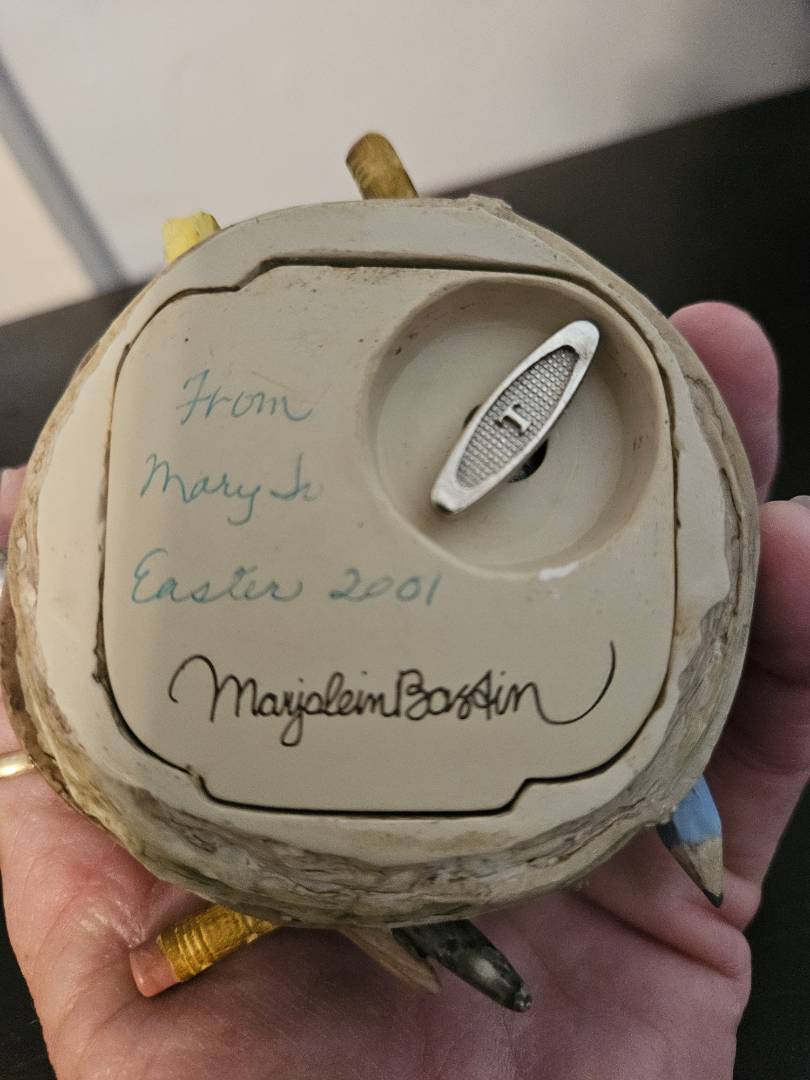 From
Mary Jo
Easter 2001
Marjolein Bastin